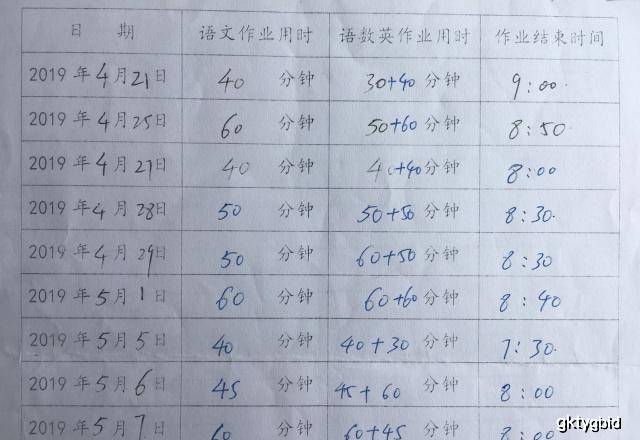 日 期 语文作业用时 语数英作业用时 作业结束时间
2019 年 4 月 21 日 40 分钟 30+40 分钟 9:00
2019 年 4 月 25 日 60 分钟 50+60 分钟 8:50
2019 年 4 月 27 日 40 分钟 40+40 分钟 8:00
2019 年 4 月 28 日 50 分钟 50+50 分钟 8:30
2019 年 4 月 29 日 50 分钟 60+50 分钟 8:30
2019 年 5 月 1 日 60 分钟 60+60 分钟 8:40
2019 年 5 月 5 日 40 分钟 40+30 分钟 7:30
2019 年 5 月 6 日 45 分钟 45+60 分钟 8:00
2019 年 5 月 7 日 60 分钟 60+45 分钟 8:00
gktygbid